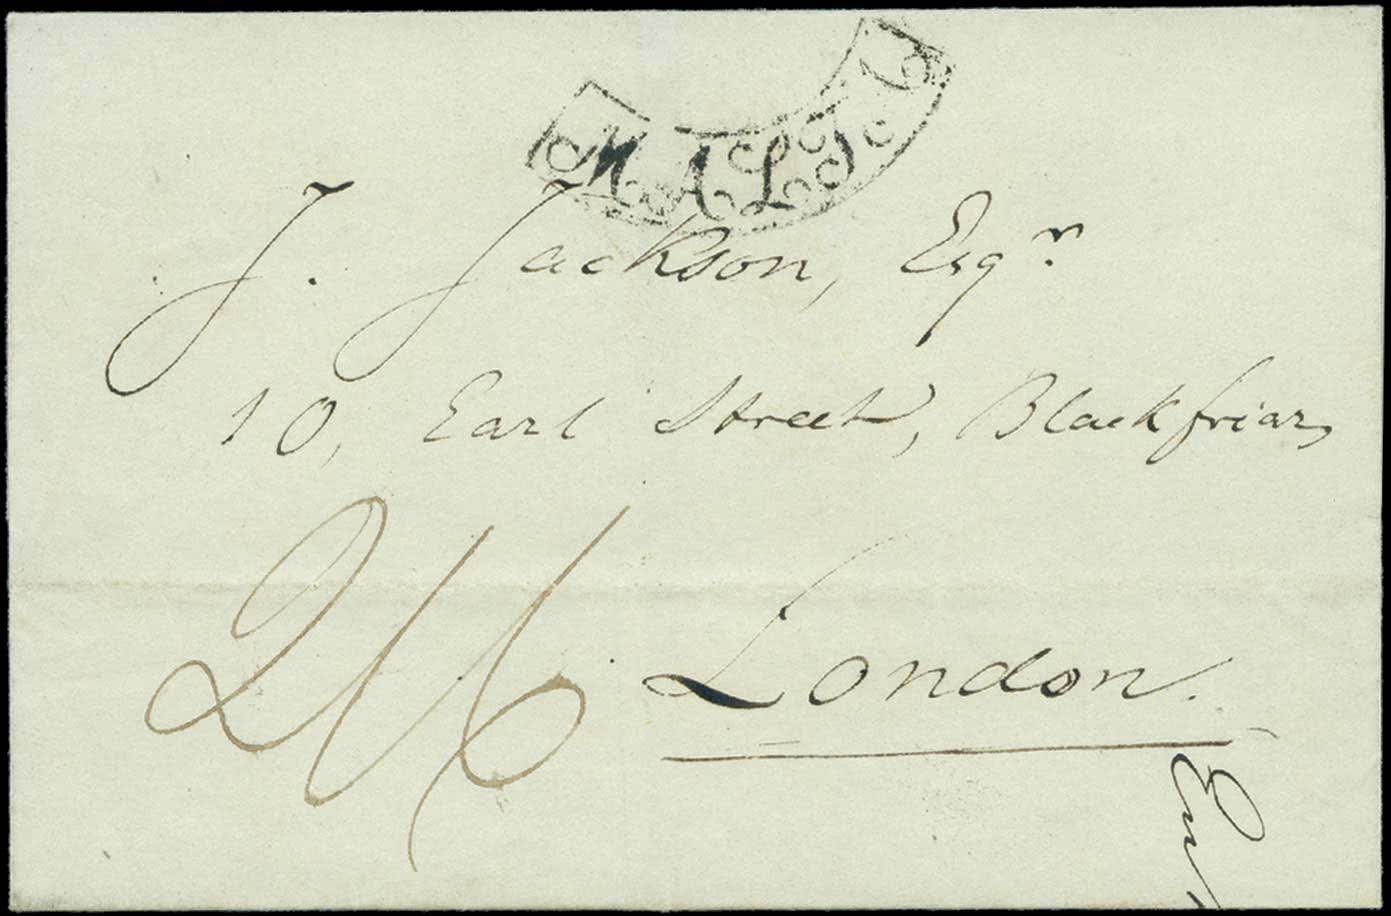 MALTA
J. Jackson, Esqr.
10, Earl Street, Blackfriars
2/6
London.